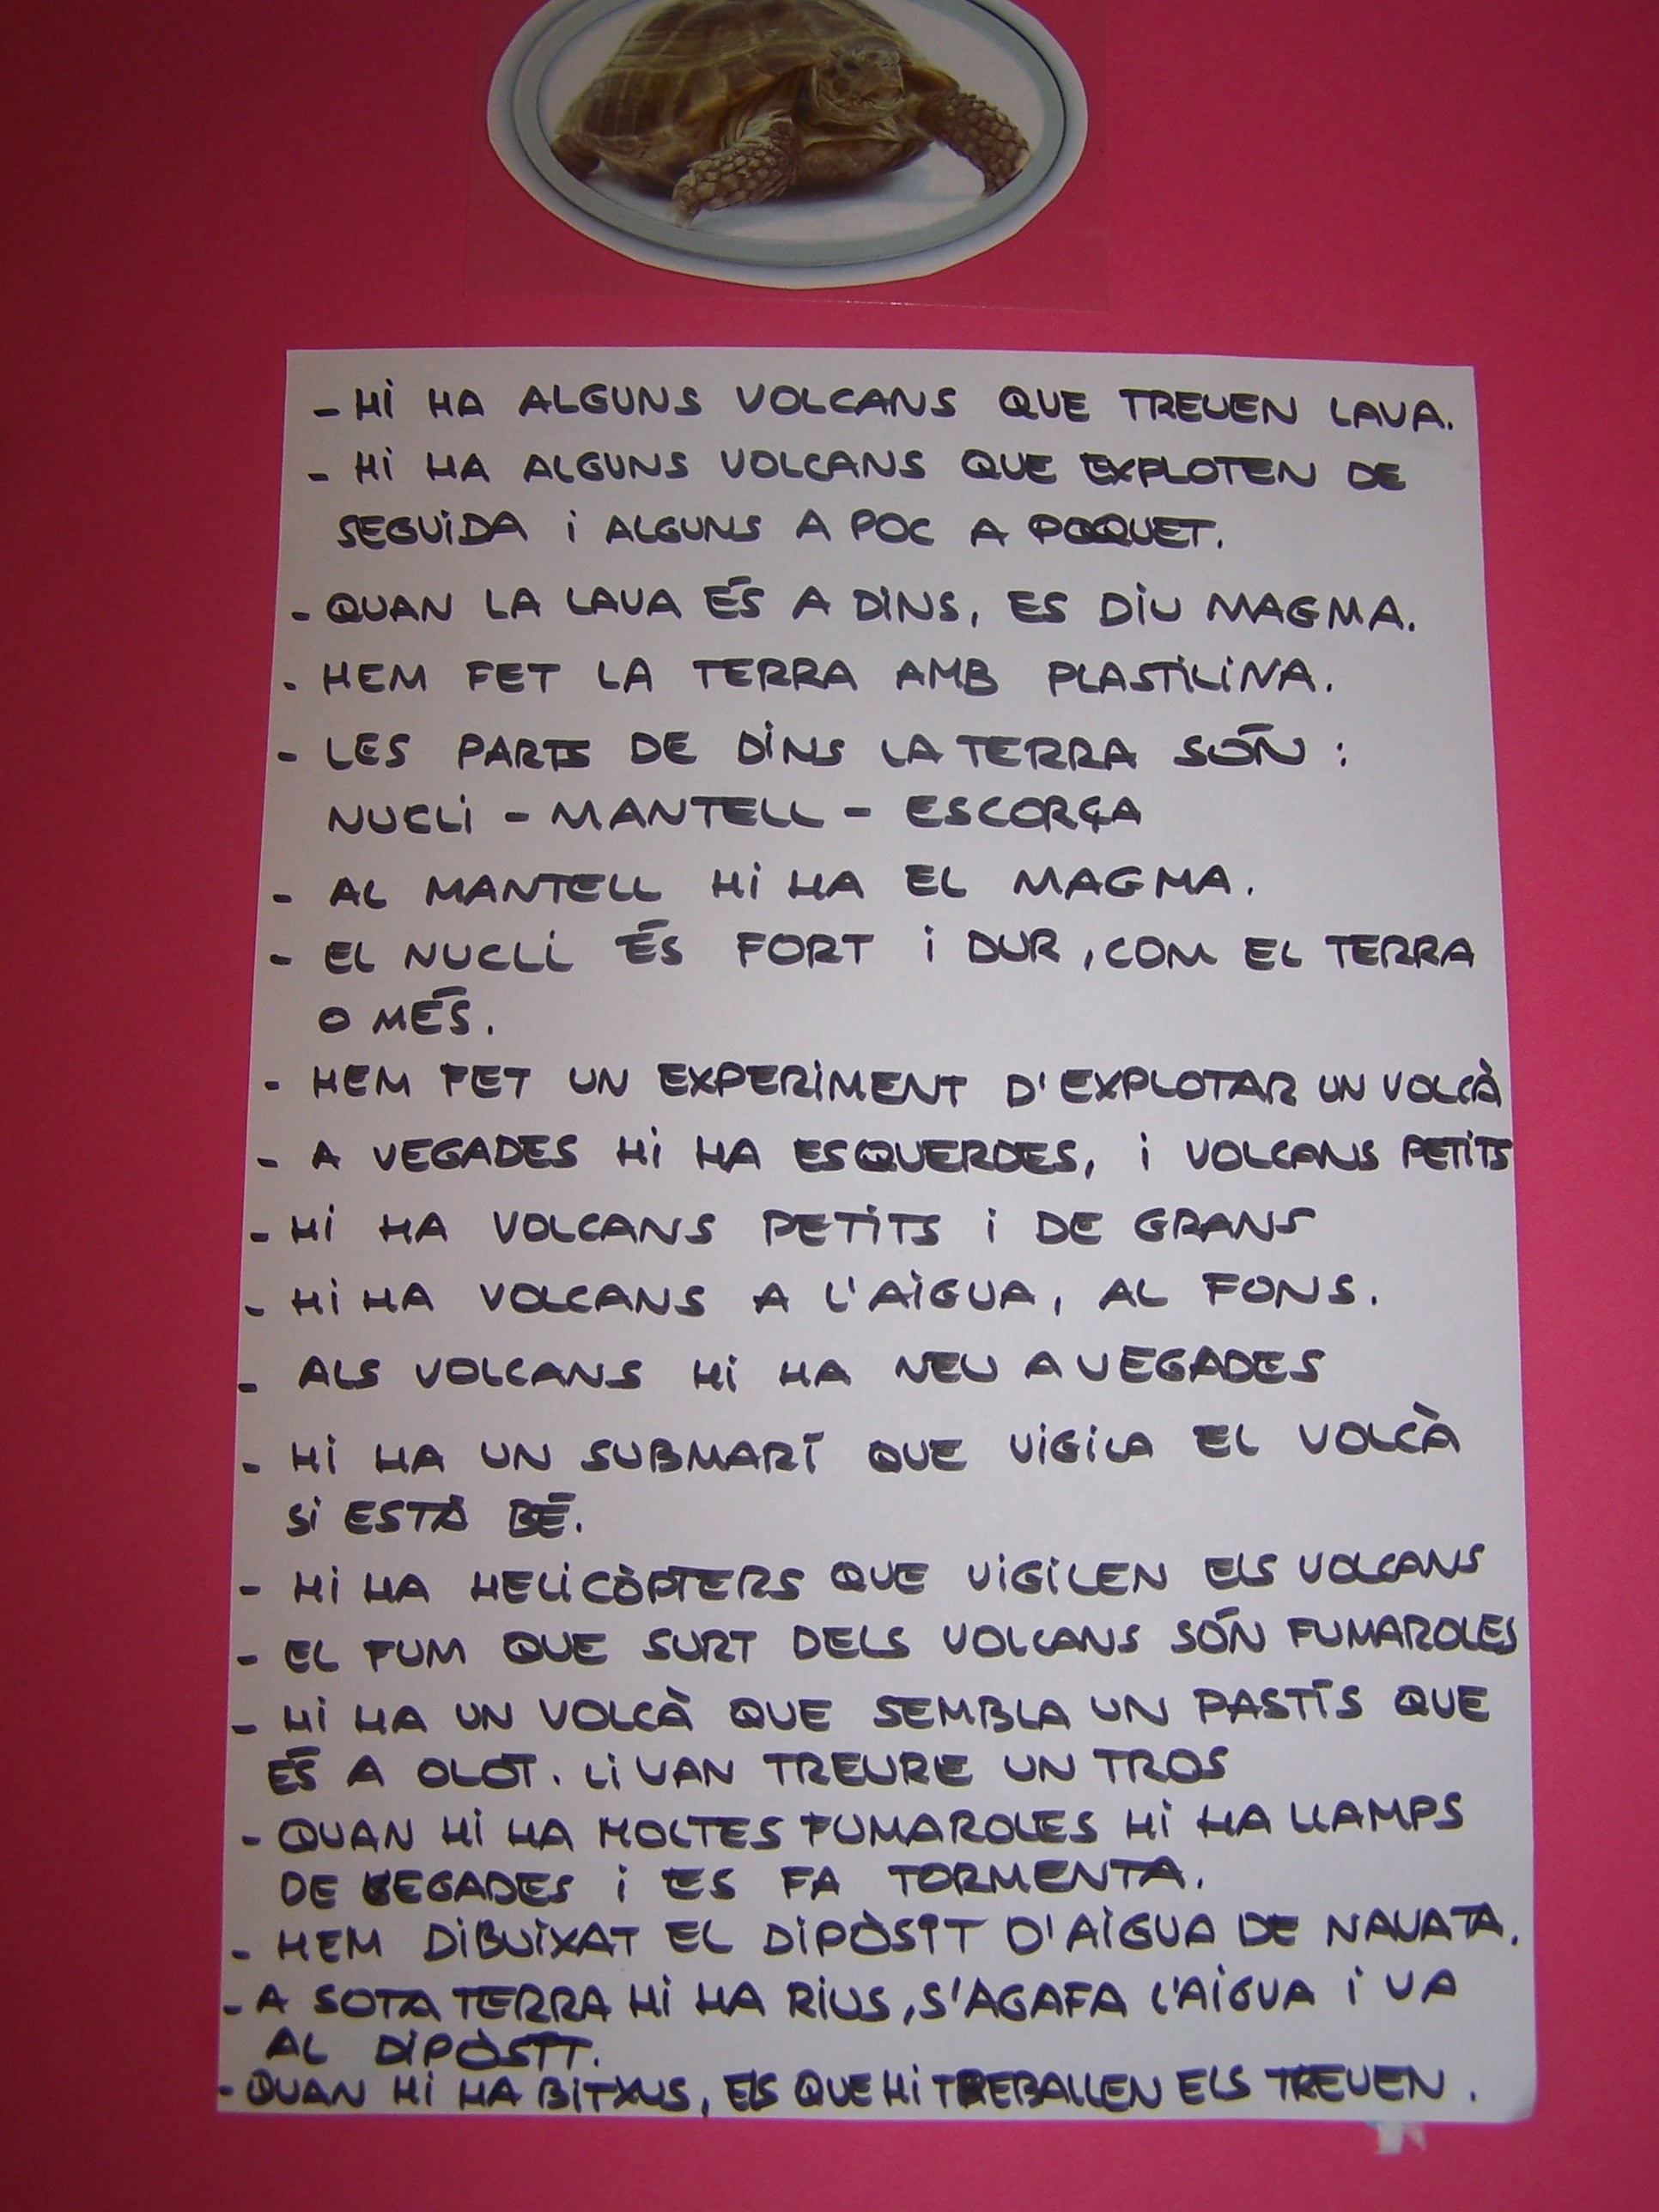 - Hi HA ALGUNS VOLCANS QUE TREUEN LAVA.
- Hi HA ALGUNS VOLCANS QUE EXPLOTEN DE
SEGUiDA i ALGUNS A POC A POQUET.
- QUAN LA LAVA ÉS A DiNS, ES DiU MAGMA.
- HEM FET LA TERRA AMB PLASTiLiNA.
- LES PARTS DE DiNS LA TERRA SÓN :
NUCLi - MANTELL - ESCORÇA
- AL MANTELL Hi HA EL MAGMA.
- EL NUCLi ÉS FORT i DUR, COM EL TERRA
O MÉS.
- HEM FET UN EXPERiMENT D'EXPLOTAR UN VOLCÀ
- A VEGADES Hi HA ESQUERDES, i VOLCANS PETiTS
- Hi HA VOLCANS PETiTS i DE GRANS
- Hi HA VOLCANS A L'AiGUA, AL FONS.
- ALS VOLCANS Hi HA NEU A VEGADES
- Hi HA UN SUBMARÍ QUE ViGiLA EL VOLCÀ
Si ESTÀ BÉ.
- Hi HA HELiCÒPTERS QUE ViGiLEN ELS VOLCANS
- EL FUM QUE SURT DELS VOLCANS SÓN FUMAROLES
- Hi HA UN VOLCÀ QUE SEMBLA UN PASTÍS QUE
ÉS A OLOT. Li VAN TREURE UN TROS
- QUAN Hi HA MOLTES FUMAROLES Hi HA LLAMPS
DE VEGADES i ES FA TORMENTA.
- HEM DiBUiXAT EL DiPÒSiT D'AiGUA DE NAVATA.
- A SOTA TERRA Hi HA RiUS, S'AGAFA L'AiGUA i VA
AL DiPÒSiT.
- QUAN Hi HA BiTXUS, ELS QUE Hi TREBALLEN ELS TREUEN.